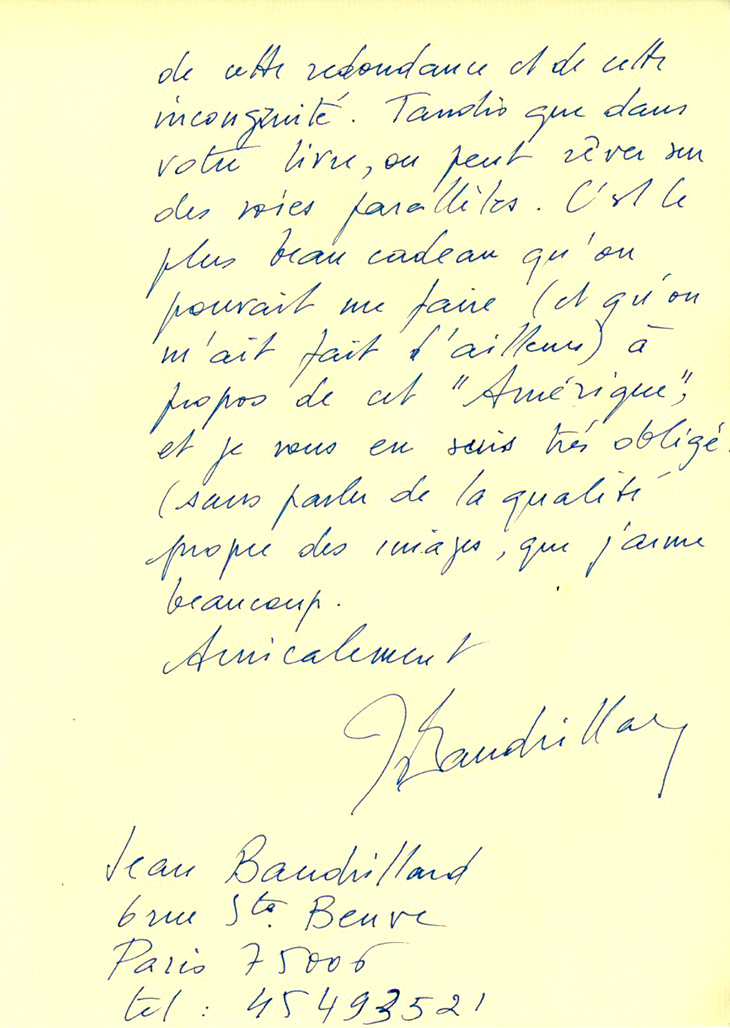 de cette redondance et de cette
incongruité. Tandis que dans
votre livre, on peut rêver sur
des voies parallèles. C'est le
plus beau cadeau qu'on
pouvait me faire (et qu'on
m'ait fait d'ailleurs) à
propos de cet "Amérique",
et je vous en suis très obligé.
(sans parler de la qualité
propre des images, que j'aime
beaucoup.
Amicalement
J Baudrillard
Jean Baudrillard
6 rue Ste. Beuve
Paris 75006
tel : 45493521